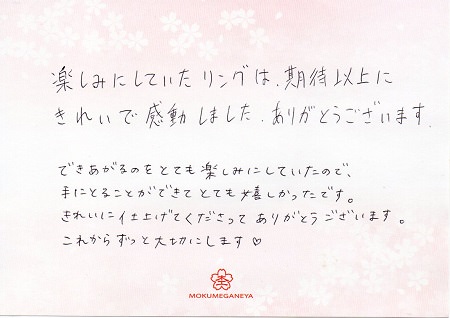 楽しみにしていたリングは、期待以上に
きれいで感動しました。ありがとうございます。
できあがるのをとても楽しみにしていたので、
手にとることができてとても嬉しかったです。
きれいに仕上げてくださってありがとうございます。
これからずっと大切にします♡
MOKUMEGANEYA